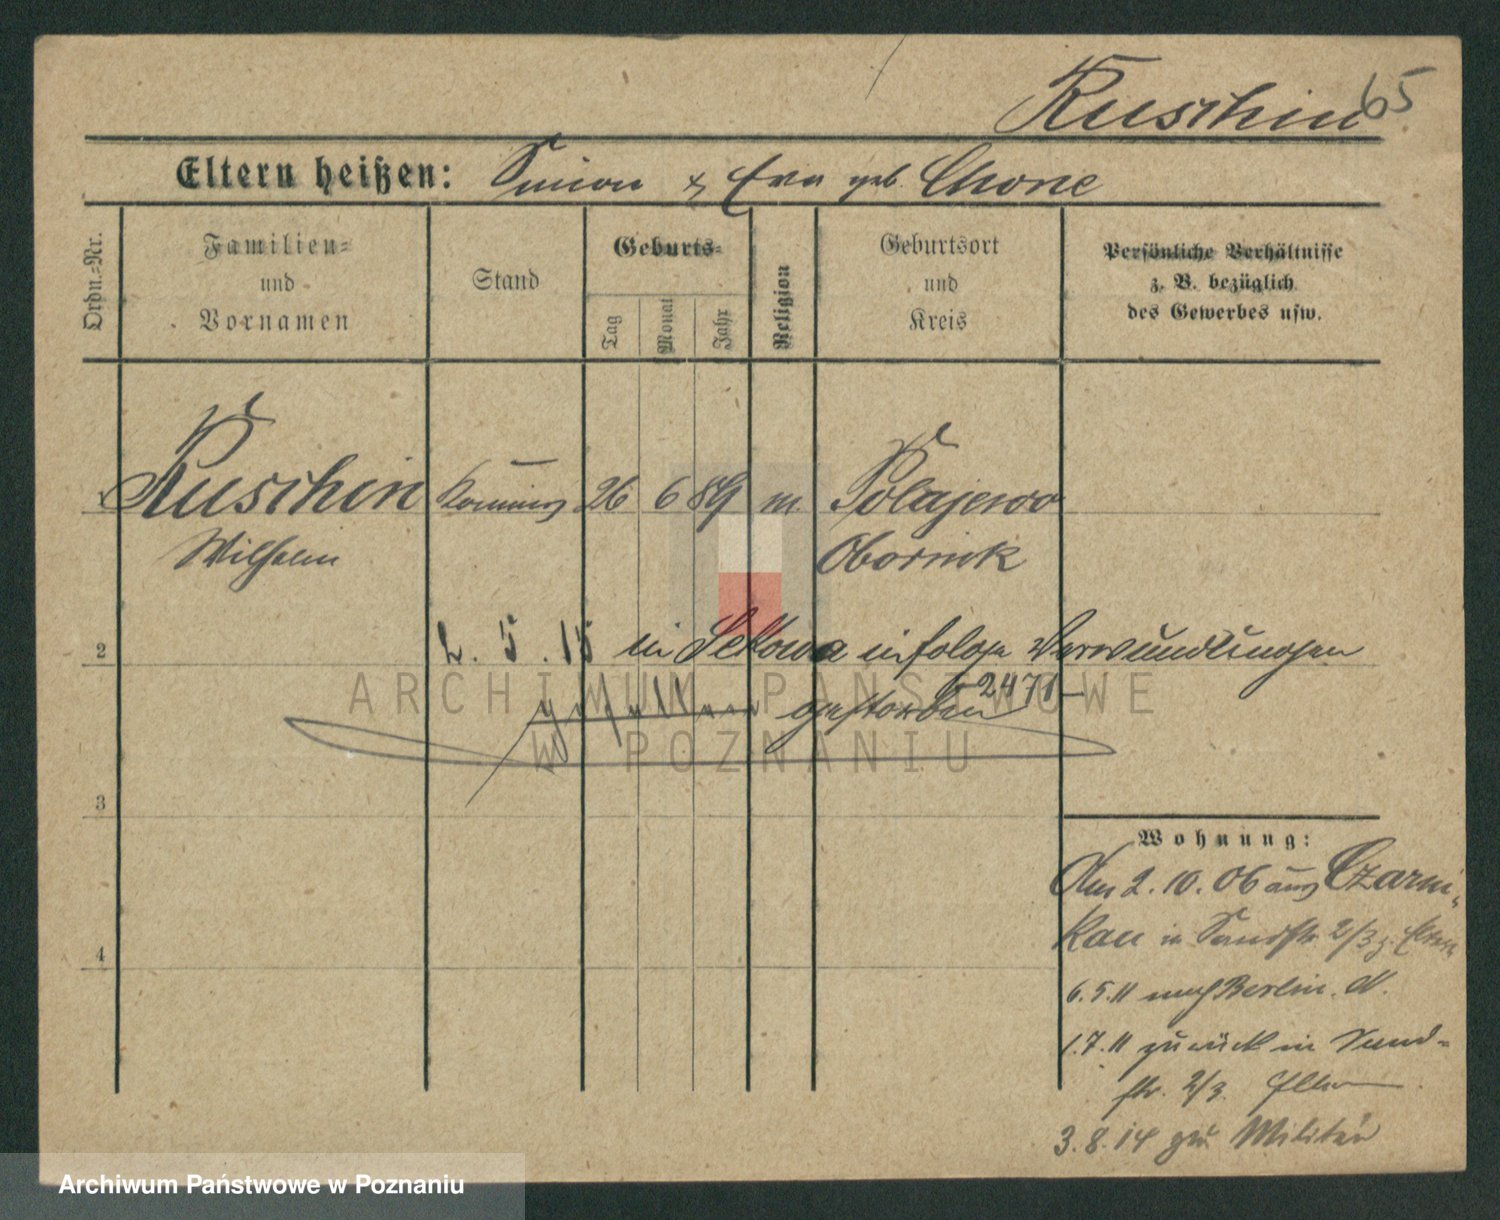 65
Ruschin
Eltern heißen: Simon & Eva geb. Chone
Ordn.-Nr.
Familien-
und
Vornamen
Stand
Geburts-
Tag
Monat
Jahr
Religion
Geburtsort
und
Kreis
Persönliche Verhältnisse
z. B. bezüglich
des Gewerbes usw.
1 Ruschin 26 6 89 m. Polajewo
Wilhelm Obornik
2 2. 5. 15 in Sekowa infolge Verwundungen
2471
gefallen gestorben
3
Wohnung:
Am 2. 10. 06 aus Czarni-
kau in Sandstr. 2/3 z. Eltern
4
6.5.11 nach Berlin.
1.7.11 zurück in Sand-
str. 2/3. Eltern
3.8.14 zum Militär
ARCHIWUM PAŃSTWOWE
W POZNANIU
Archiwum Państwowe w Poznaniu